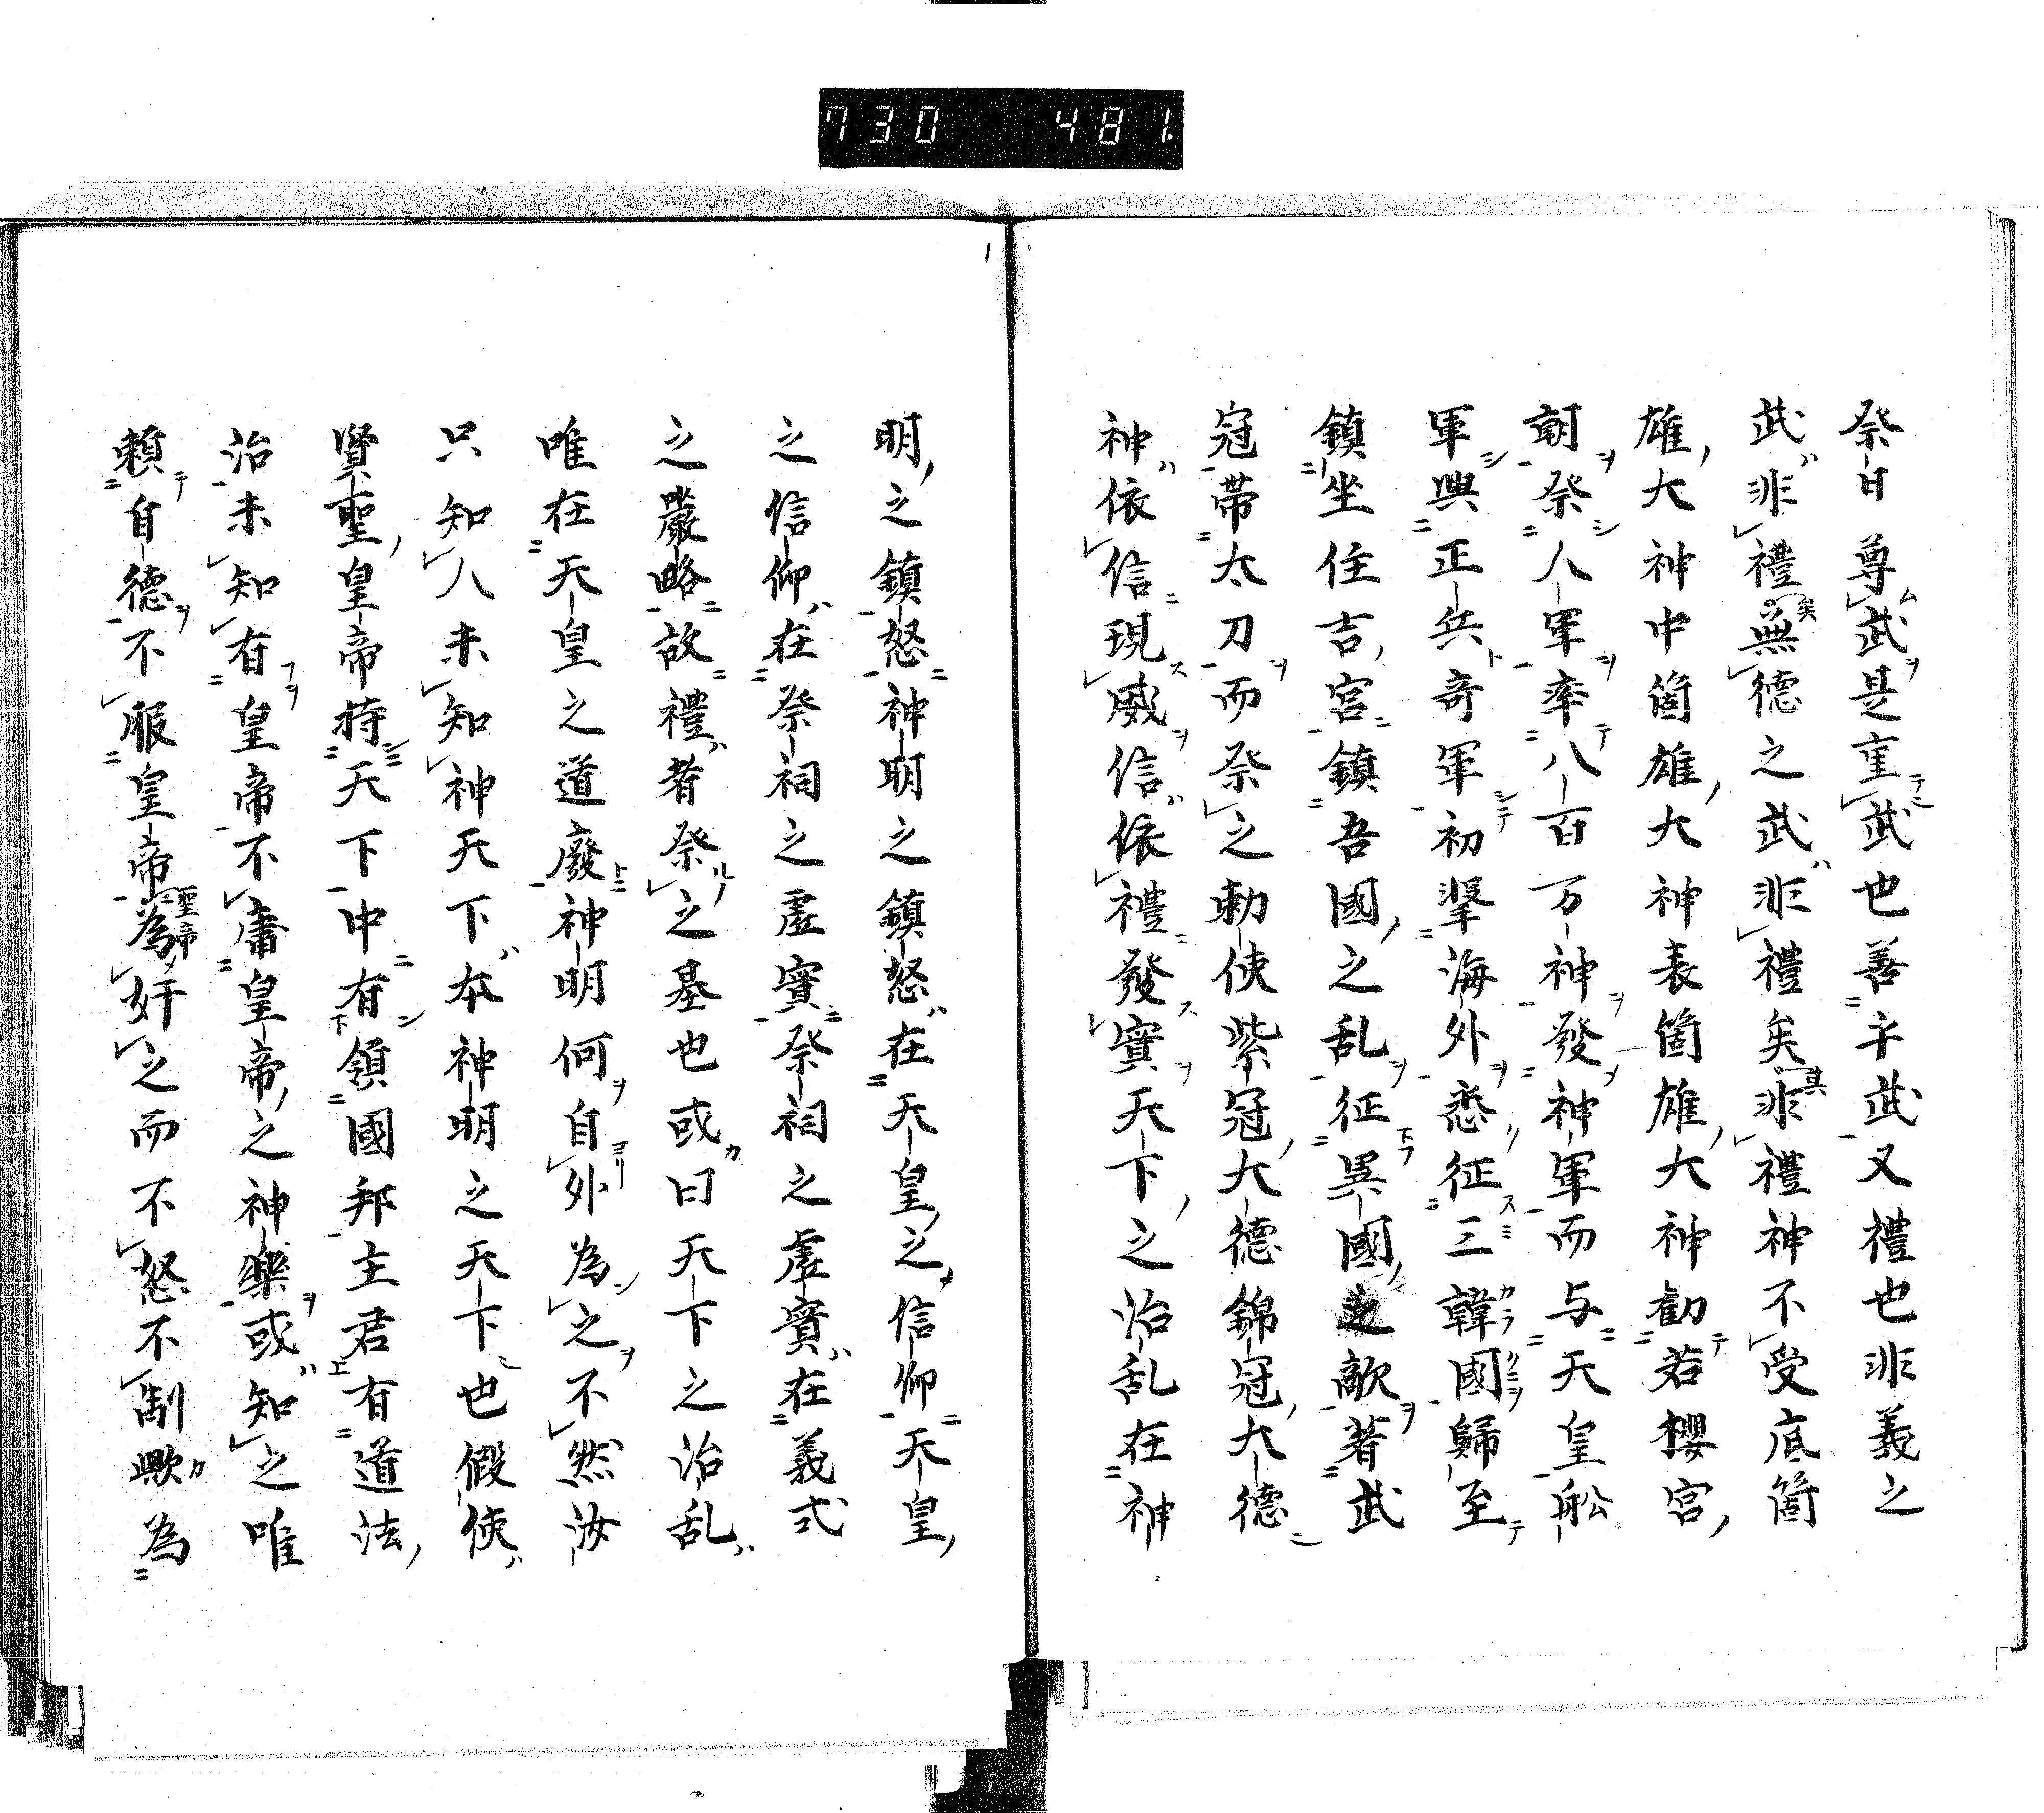 730 481
祭日尊武是重武也善乎武又禮也非義之
武非禮無德之武非禮矣非禮神不受底箇
雄大神中箇雄大神表箇雄大神勧若櫻宮
朝祭人軍率八百万神發神軍而与天皇舩
軍興正兵奇軍初挐海外悉征三韓國歸至
鎮坐住吉宮鎮吾國之乱征異國之敵著武
冠帶太刀而祭之勅使紫冠大德錦冠大德
神依信現威信依禮發實天下之治乱在神
明之鎮怒神明之鎮怒在天皇之信仰天皇
之信仰在祭祠之虛實祭祠之虛實在義式
之嚴略故禮者祭之基也或曰天下之治乱
唯在天皇之道廢神明何自外為之不然汝
只知人未知神天下本神明之天下也假使
賢聖皇帝持天下中有領國邦主君有道法
治未知有皇帝不庸皇帝之神樂或知之唯
賴自德不服皇帝為奸之而不怒不制歟為